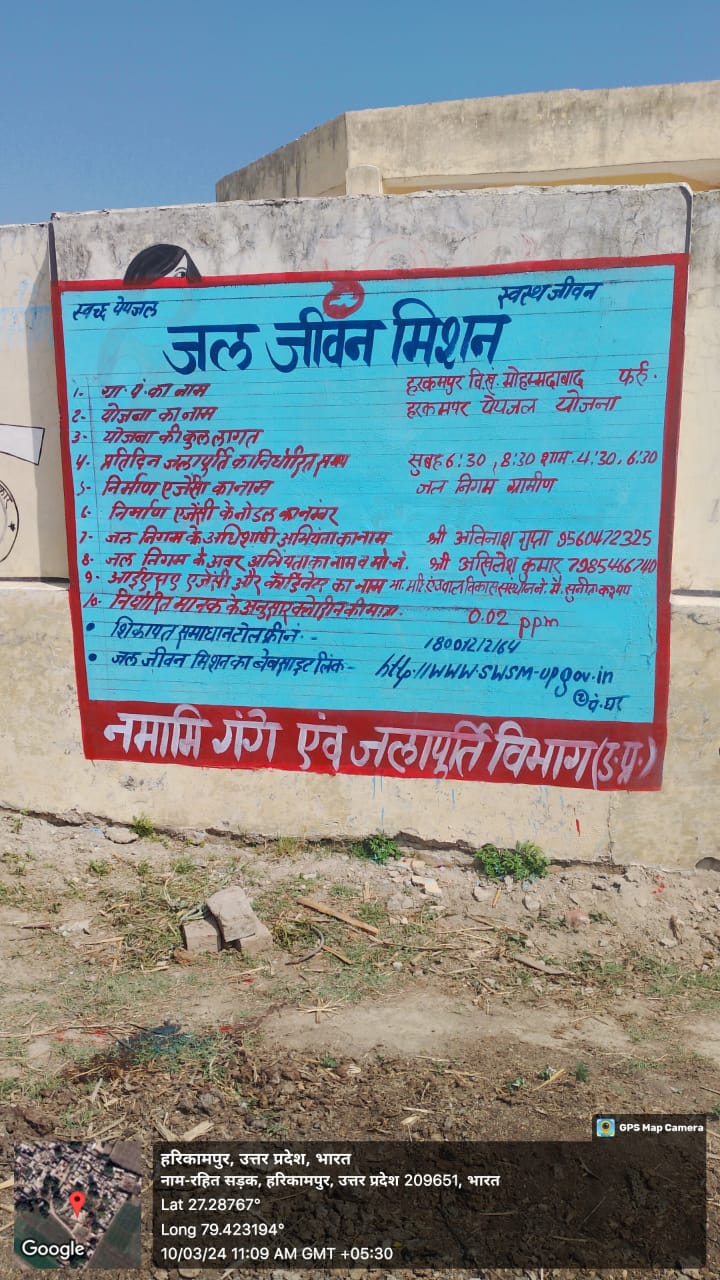 स्वच्छ पेयजल
स्वस्थ जीवन
जल जीवन मिशन
1- ग्रा. पं. का नाम हरकमपुर वि.ख. मोहम्मदाबाद फर्रु.
2- योजना का नाम हरकमपर पेयजल योजना
3- योजना की कुल लागत
4- प्रतिदिन जलापूर्ति का निर्धारित समय सुबह 6:30, 8:30 शाम. 4:30, 6:30
5- निर्माण एजेंसी का नाम जल निगम ग्रामीण
6- निर्माण एजेंसी के नोडल का नम्बर
7- जल निगम के अधिशाषी अभियंता का नाम श्री अविनाश गुप्ता 9560472325
8- जल निगम के अवर अभियंता का नाम व मो.नं. श्री अखिलेश कुमार 7985466740
9- आईएसए एजेंसी और कॉर्डिनेटर का नाम सुनीता कश्यप
10- निर्धारित मानक के अनुसार क्लोरीन की मात्रा. 0.02 ppm
• शिकायत समाधान टोल फ्री नं. - 18001212164
• जल जीवन मिशन का बेबसाइट लिंक- http://www.swsm-up.gov.in
पं. घर
नमामि गंगे एंव जलापूर्ति विभाग (उ.प्र.)
GPS Map Camera
हरिकामपुर, उत्तर प्रदेश, भारत
नाम-रहित सड़क, हरिकामपुर, उत्तर प्रदेश 209651, भारत
Lat 27.28767°
Long 79.423194°
10/03/24 11:09 AM GMT +05:30
Google